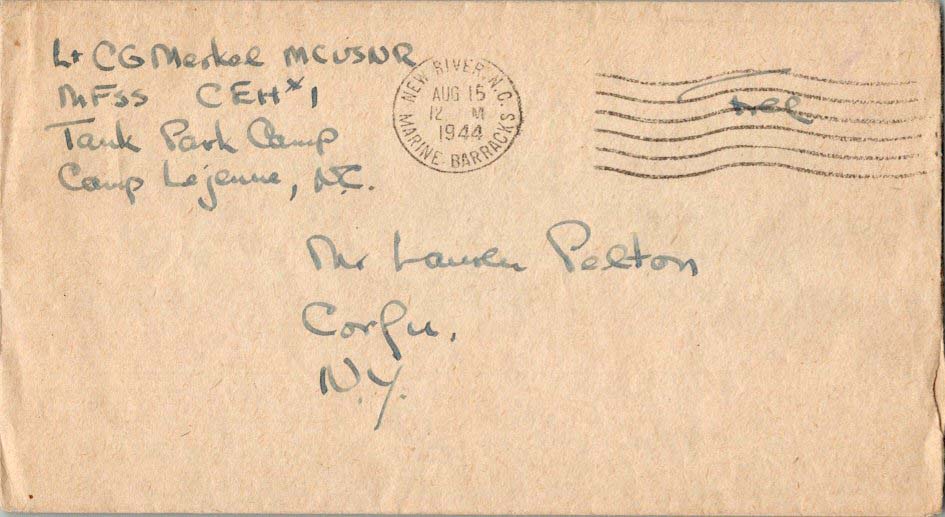 Lt CG Merkel MCUSNR
MFSS CEH#1
Tank Park Camp
Camp Lejeune, N.C.
NEW RIVER, N.C.
AUG 15
12 M
1944
MARINE BARRACKS
Free
Mr Lauren Pelton
Corfu,
N.Y.